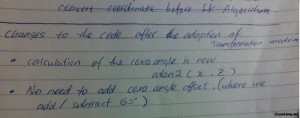 convert coordinate before IK Algorithm
Changes to the code after the adoption of
Transformation matrix
• calculation of the coxa angle is now
atan2 (x, z)
• No need to add coxa angle offset.. (where we
add / subtract 65°)